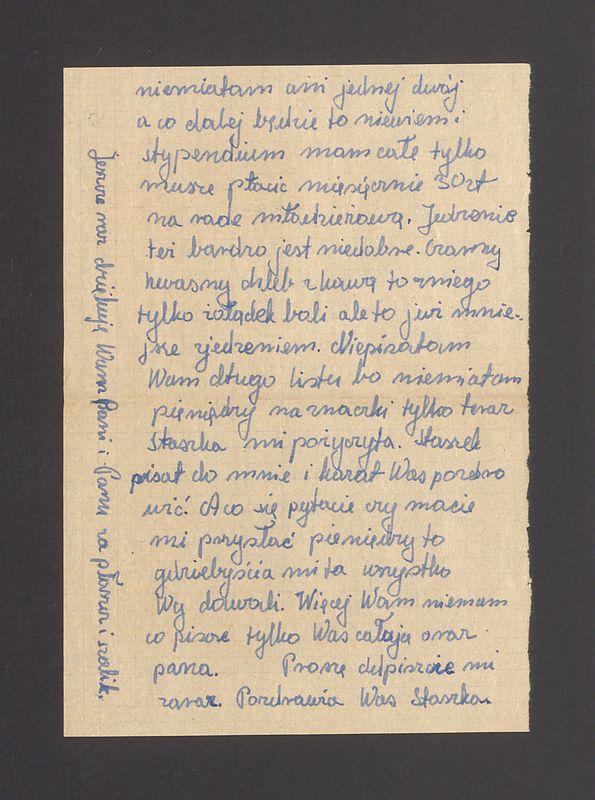 niemiałam ani jednej dwój
a co dalej będzie to niewiem i
stypendium mam całe tylko
musze płacić miesięcznie 30 zł
na rade młodzieżową. Jedzenie
też bardzo jest niedobre. Czarny
kwasny chleb z kawą to zniego
tylko żołądek boli ale to już mnie-
jsze zjedzeniem. Niepisałam
Wam długo listu bo niemiałam
pieniędzy na znaczki tylko teraz
Staszka mi pożyczyła. Staszek
pisał do mnie i kazał Was pozdro
wić. A co się pytacie czy macie
mi przysłać pieniędzy to
gdziebyścia mi ta wszystko
Wy dawali. Więcej Wam niemam
co pisze tylko Was całuję oraz
pana. Proszę odpiszcie mi
zaraz. Pozdrawia Was Staszka.
Jeszcze raz dziękuję Wam Pani i Panu za płaszcz i szalik.